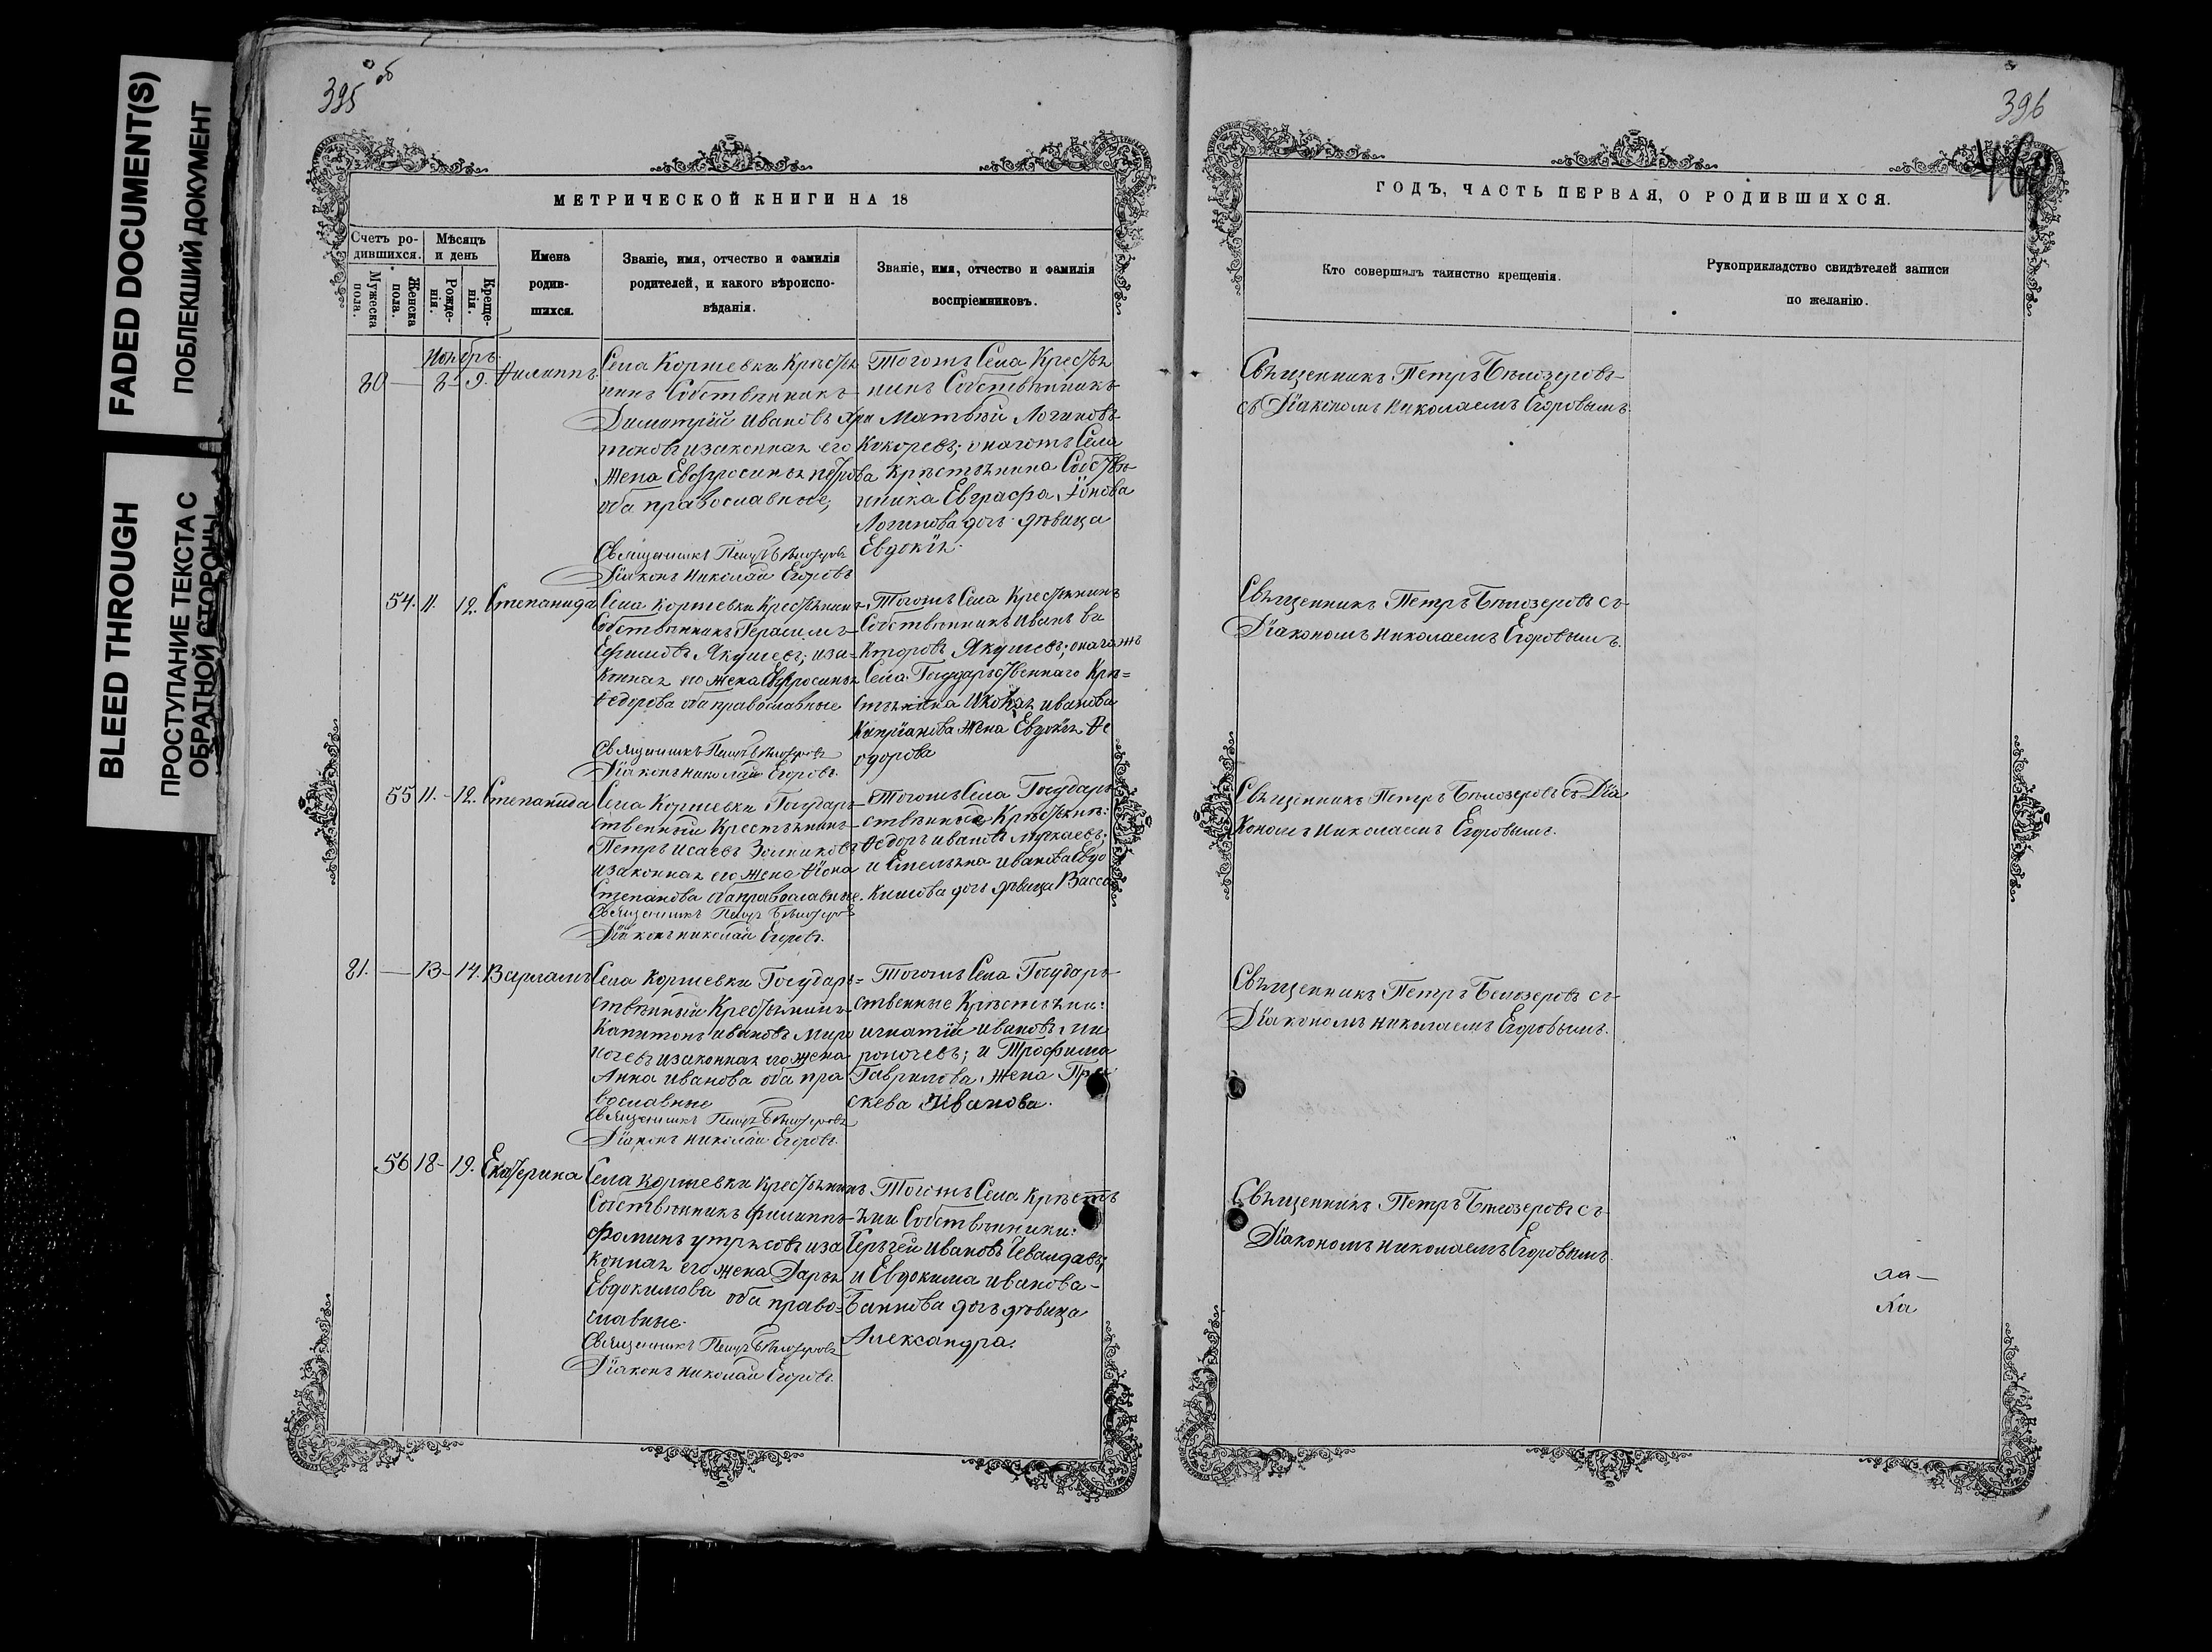 FADED DOCUMENT(S)
ПОБЛЕКШИЙ ДОКУМЕНТ
BLEED THROUGH
ПРОСТУПАНИЕ ТЕКСТА С
ОБРАТНОЙ СТОРОНЫ
395 об
МЕТРИЧЕСКОЙ КНИГИ НА 18
Счетъ ро-
дившихся.
Мужеска
пола.
Женска
пола.
Мѣсяцъ
и день
Рожде-
нія.
Креще-
нія.
Имена
родив-
шихся.
Званіе, имя, отчество и фамилія
родителей, и какого вѣроиспо-
вѣданія.
Званіе, имя, отчество и фамилія
воспріемниковъ.
Ноябрь.
80 — 8. 9. Филиппъ.
Села Коршевки Крестья
нинъ Собственникъ
Димитрій Ивановъ
и законная его
жена Евфросинья Петрова
оба православные;
Священникъ Петръ Бѣлозеровъ
Діаконъ Николай Егоровъ
Тогожъ Села Крестья
нинъ Собственникъ
Матвѣй Логиновъ
Кокоревъ; онагожъ Села
Крестьянина Собстве-
нника Евграфа Іонова
Логинова дочь дѣвица
Евдокія.
54. 11. 12. Степанида
Села Коршевки Крестьянинъ
Собственникъ Герасимъ
Ефимовъ Якушевъ; иза-
конная его жена Евфросинья
Федорова оба православные
Священникъ Петръ Бѣлозеровъ
Діаконъ Николай Егоровъ.
Тогожъ Села Крестьянинъ
Собственникъ Иванъ Ви
кторовъ Якушевъ; онагожъ
Села Государственнаго Кре=
стьянина Иванова
Кипріанова жена Евдокія Фе
одорова
55 11. - 12. Степанида
Села Коршевки Государ-
ственный Крестьянинъ
Петръ Исаевъ Золниковъ
изаконная его жена Фіона
Степанова оба православные.
Священникъ Петръ Бѣлозеровъ
Діаконъ Николай Егоровъ.
Тогожъ Села Государ-
ственные Крестьяне:
Федоръ Ивановъ
и Емельяна Иванова Евдо
кимова дочь дѣвица Васса
81. — 13 - 14. Варлаамъ
Села Коршевки Государ=
ственный Крестьянинъ
Капитонъ Ивановъ Миро
ночевъ изаконная его жена
Анна Иванова оба пра
вославные
Священникъ Петръ Бѣлозеровъ
Діаконъ Николай Егоровъ.
Тогожъ Села Государ-
ственные Крестьяни:
Игнатій Ивановъ Ми
роночевъ; и Трофима
Гаврилова жена Пра
скева Иванова.
56 18 - 19. Екатерина
Села Коршевки Крестьянинъ
Собственникъ Филиппъ
Фоминъ Утрясовъ иза
конная его жена Дарья
Евдокимова оба право=
славные.
Священникъ Петръ Бѣлозеровъ
Діаконъ Николай Егоровъ.
Тогожъ Села Кресть
яни Собственники:
Сергѣй Ивановъ Чевалдаевъ;
и Евдокима Иванова
Банкова дочь дѣвица
Александра.
396
ГОДЪ, ЧАСТЬ ПЕРВАЯ, О РОДИВШИХСЯ.
Кто совершалъ таинство крещенія.
Рукоприкладство свидѣтелей записи
по желанію.
Священникъ Петръ Бѣлозеровъ
съ Діакономъ Николаемъ Егоровымъ.
Священникъ Петръ Бѣлозеровъ съ
Діакономъ Николаемъ Егоровымъ.
Священникъ Петръ Бѣлозеровъ съ Діа
кономъ Николаемъ Егоровымъ.
Священникъ Петръ Белозеровъ съ
Діакономъ Николаемъ Егоровымъ.
Священникъ Петръ Бѣлозеровъ съ
Діакономъ Николаемъ Егоровымъ.